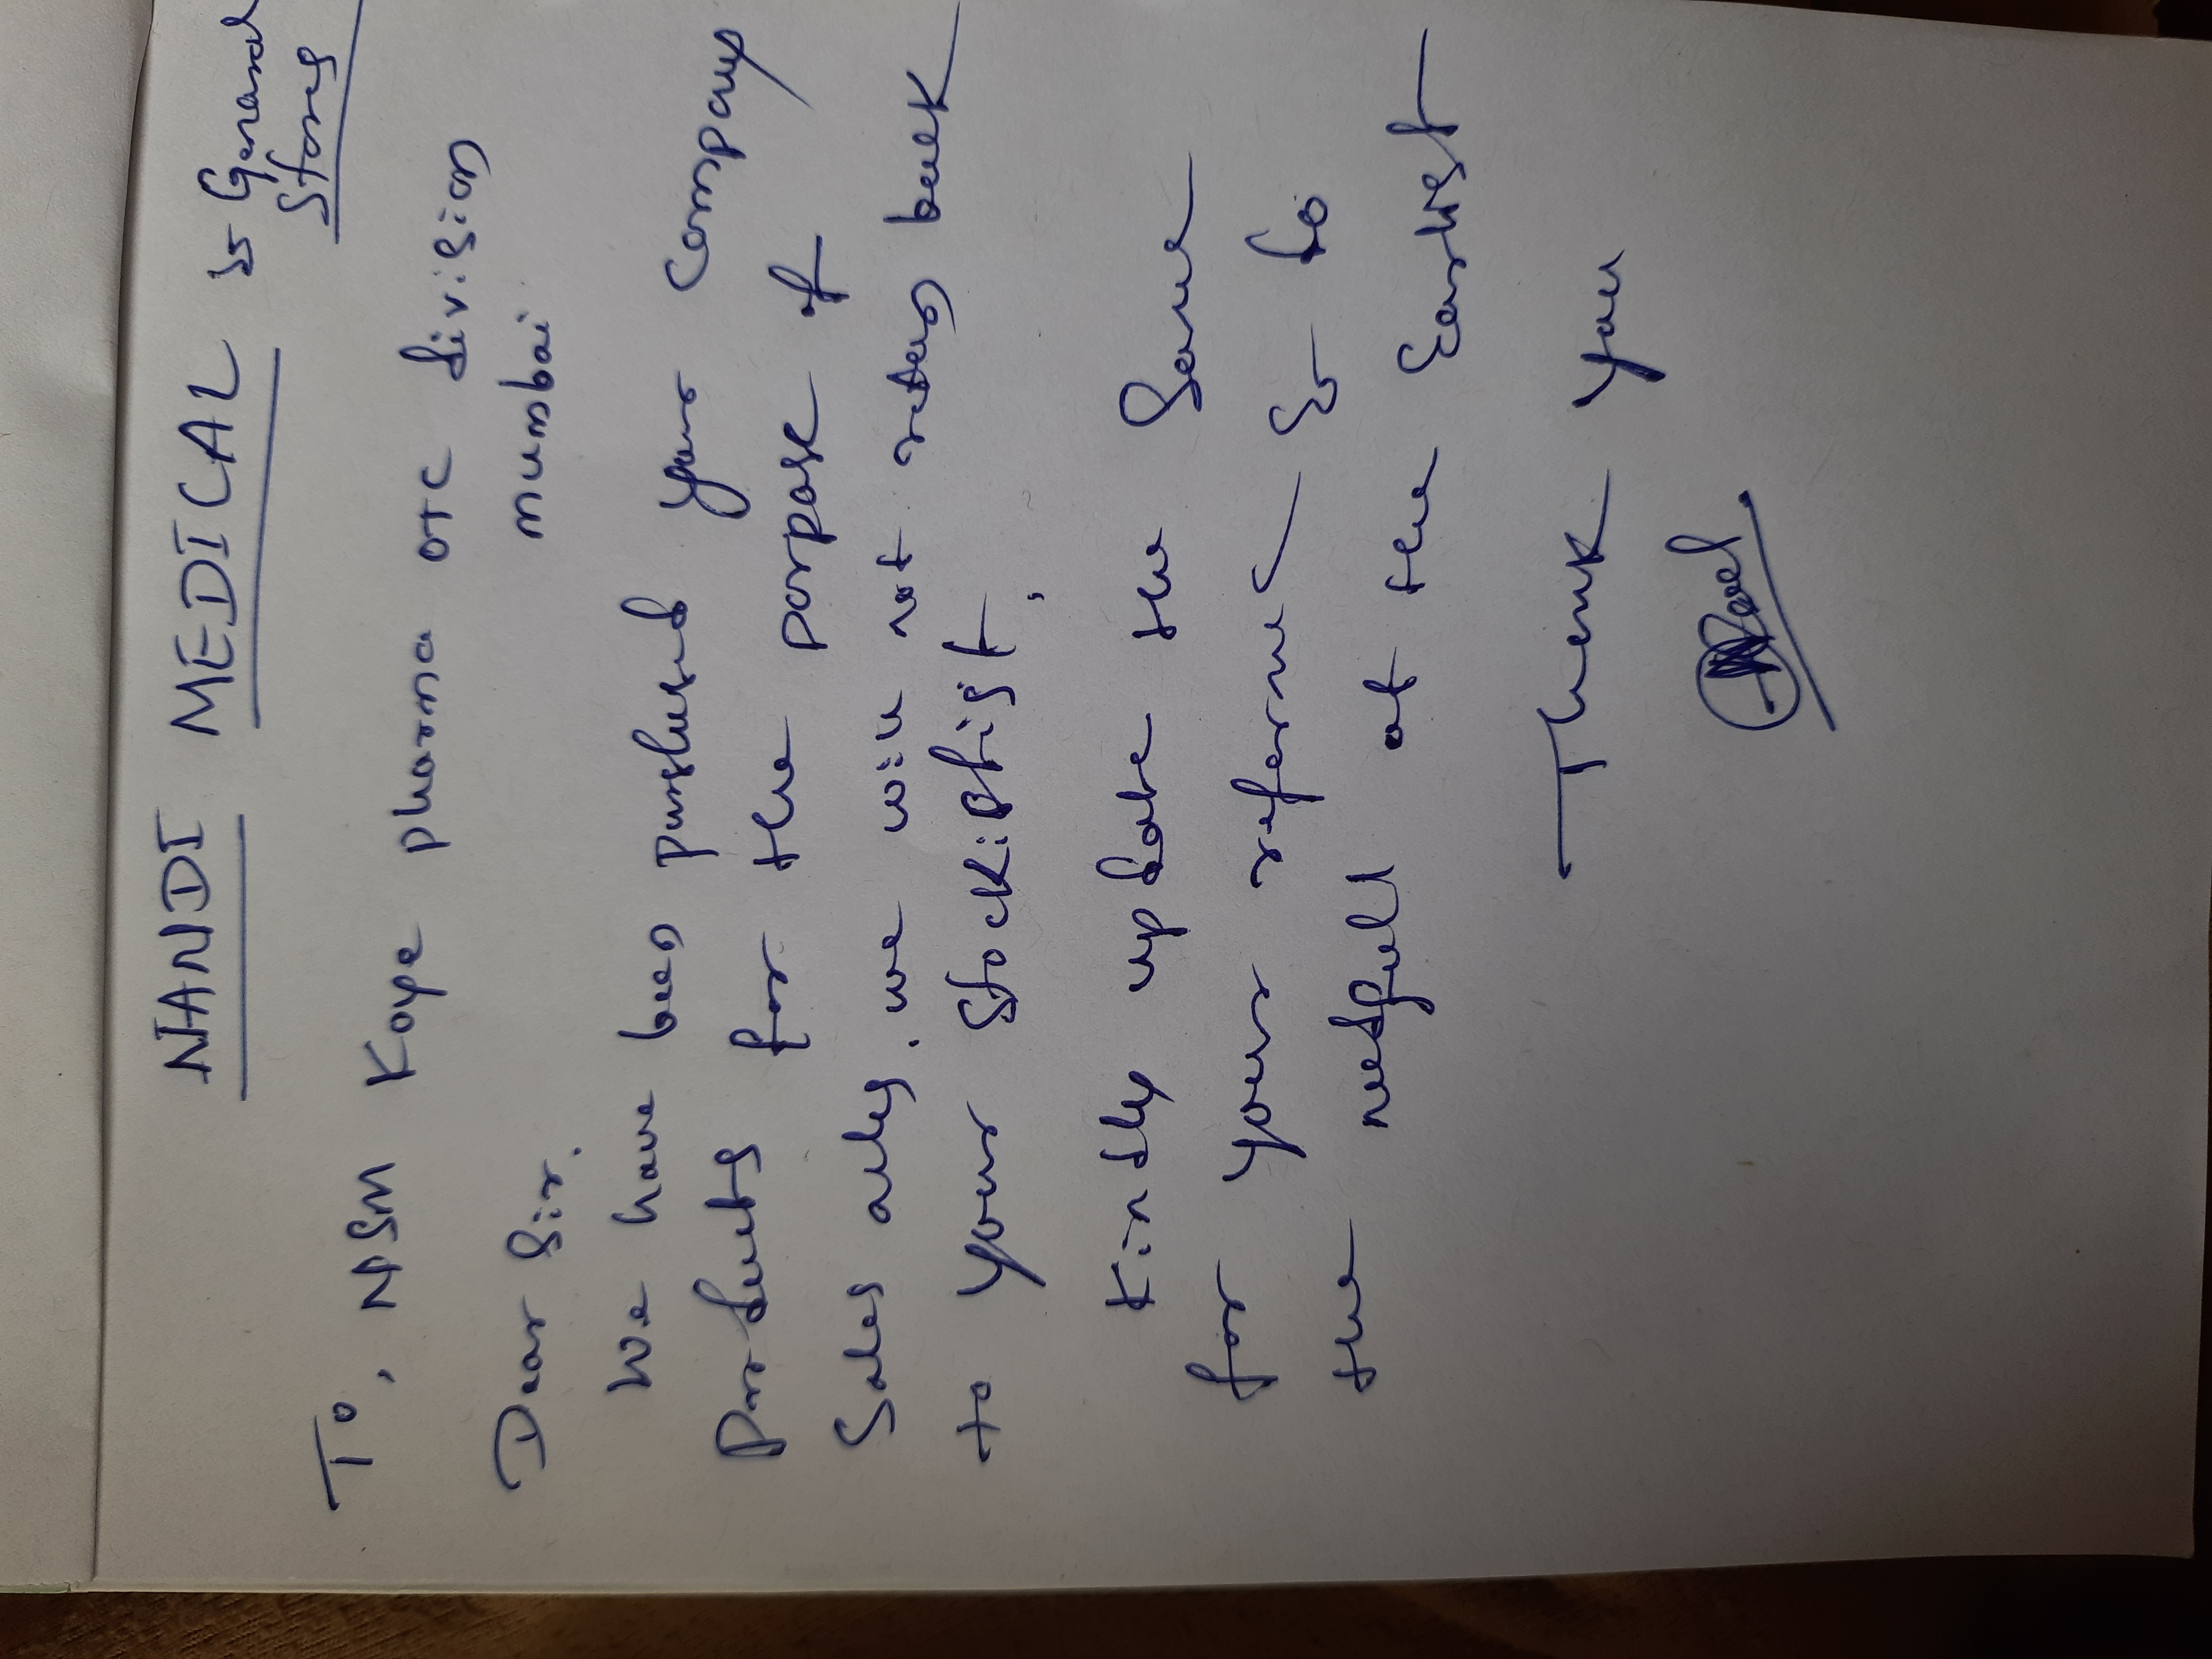 NANDI MEDICAL & General
Stores
To, NSM Koye pharma OTC division
mumbai
Dear Sir.
We have been purshased your company
Products for the porpose of
Sales only. we will not retun back
to your Stockidhist.
Kindly update the Same
for your refernec & do
the needfull at the Earliest
Thank you